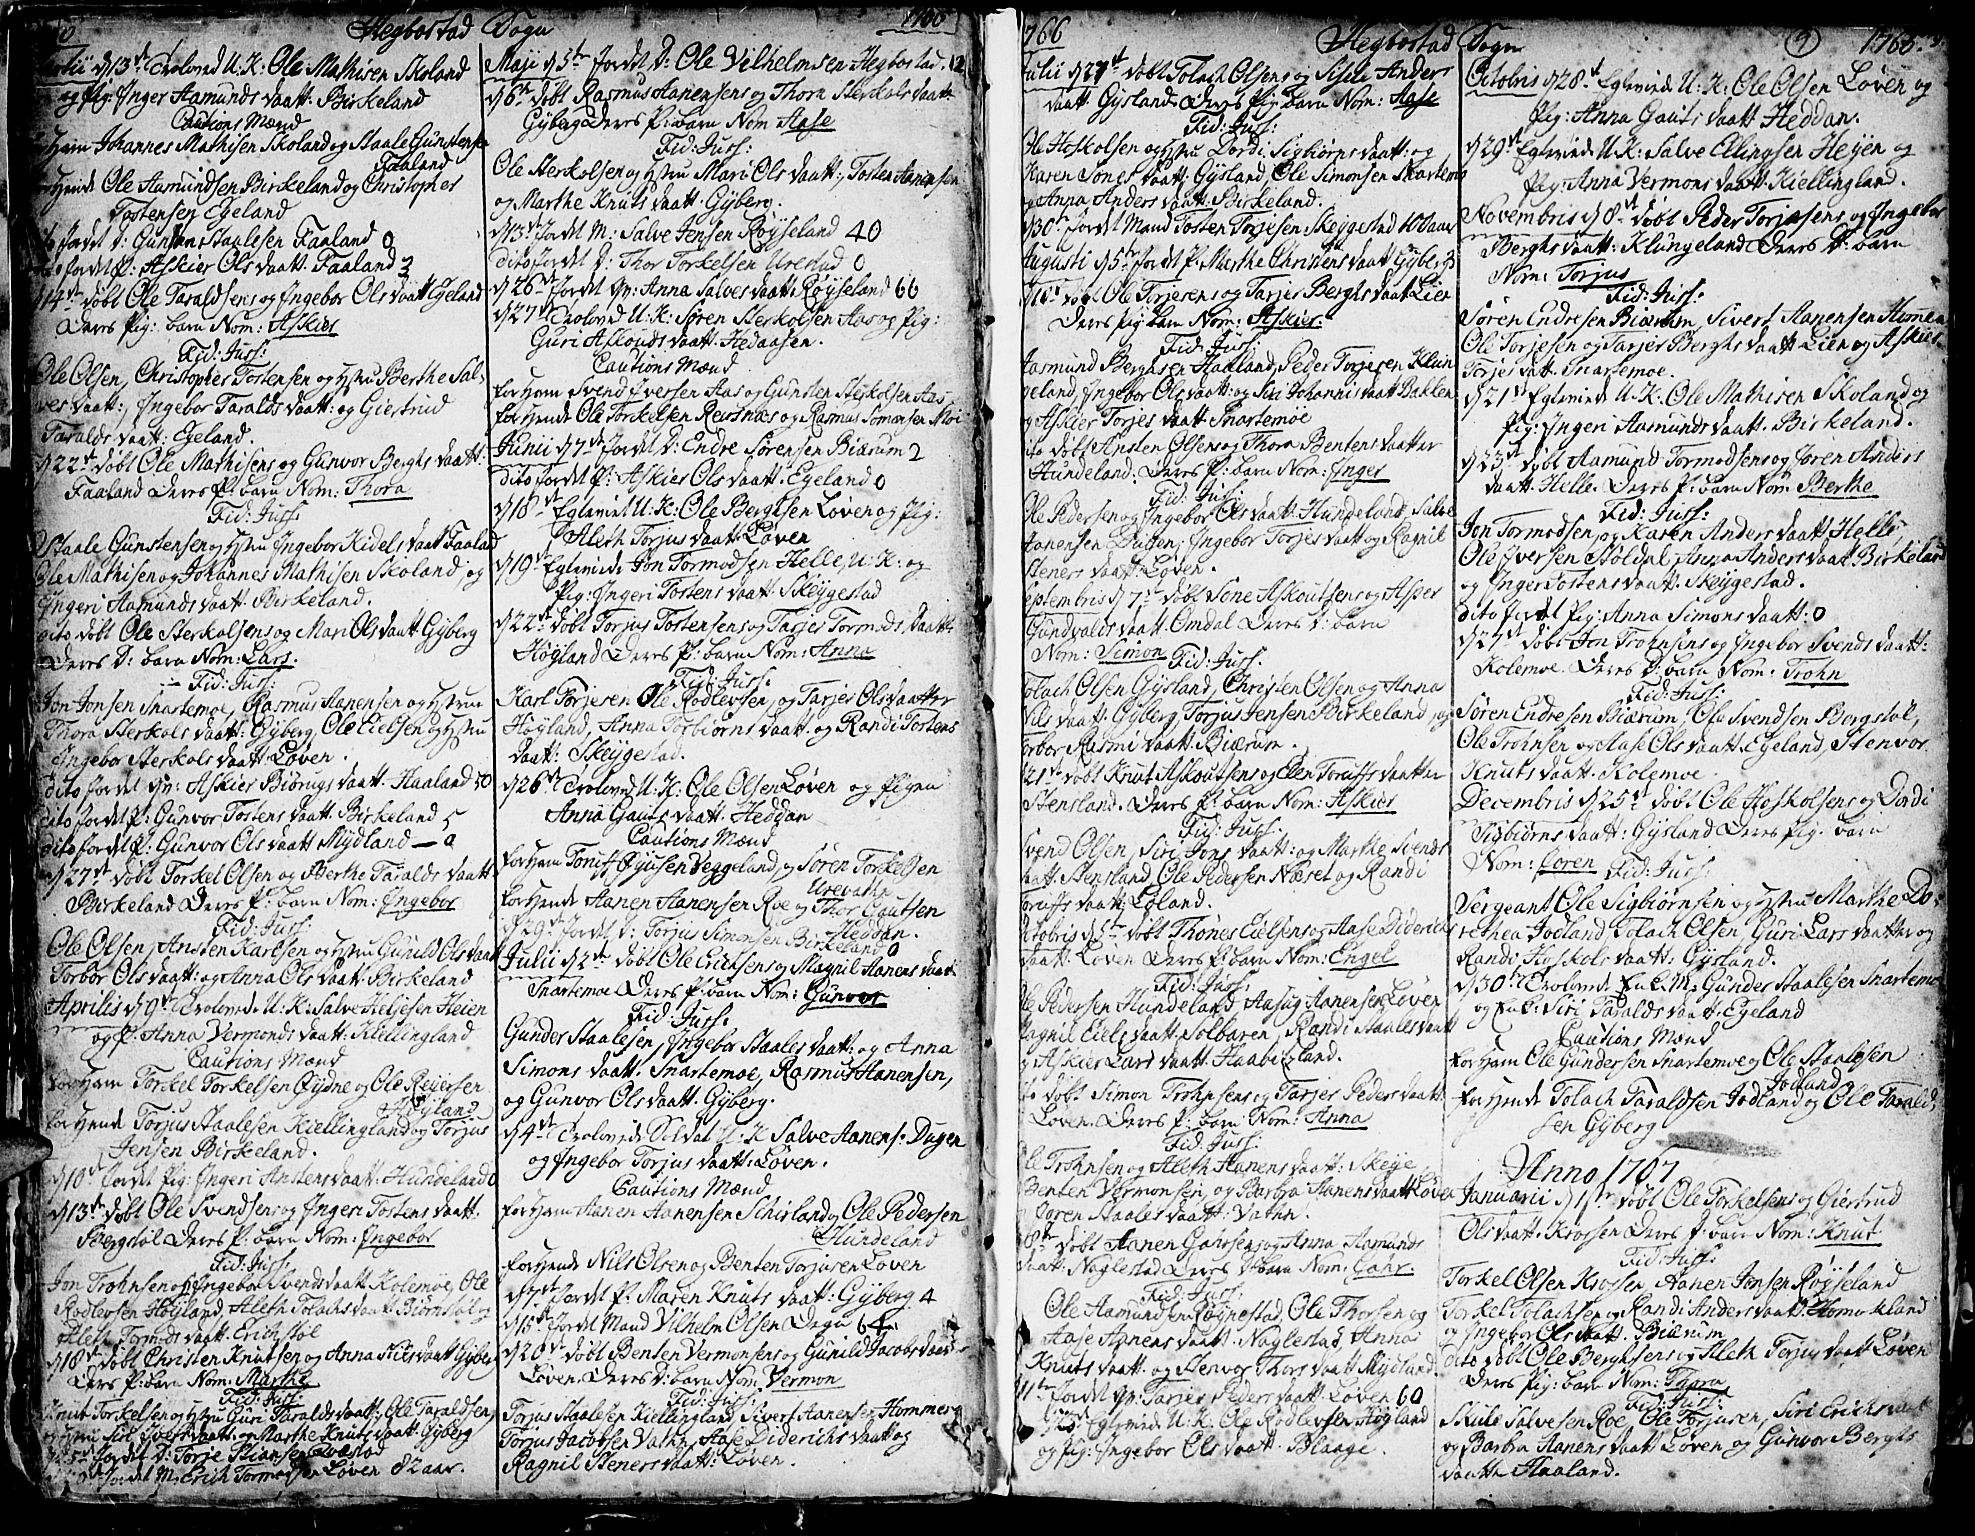 Hegbostad Sogn 1766
Martii d 13de Troloved U: K: Ole Mathisen Skoland
og Pig: Inger Aamunds daatt: Birkeland
Cautions Mænd
for Ham Johannes Mathisen Skoland og Staale Gunstensen
Faaland
for Hende Ole Aamundsen Birkeland og Christopher
Tostensen Egeland
dito Jordet D: Gunstan Staalesen Faaland 0
dito Jordet P: Askier Ols daatt. Faaland 3
d 14de døbt Ole Taraldsens og Ingebor Ols daatt Egeland
Deres Pig: barn Nom: Askier
Fid: Juss:
Ole Olsen, Christopher Tostensen og Hstru Berthe Sal-
ves daatt:, Ingebor Taralds daatt: og Giertrud
Taralds daatt: Egeland.
d 22de døbt Ole Mathisens og Gunvor Berghs daatt:
Faaland Deres P: barn Nom: Thora
Fid: Juss:
Staale Gunstensen og Hstru Ingebor Kidels daatt Faaland
Ole Mathisen og Johannes Mathisen Skoland og
Ingeri Aamunds daatt. Birkeland.
dito døbt Ole Sterkolsens og Mari Ols daatt Gyberg
Deres D: barn Nom: Lars.
Fid: Jus:
Jon Jonsen Snartemoe, Rasmus Aanensen og Hstrue
Thora Sterkols daatt: Gyberg, Ole Eielsen og Hstru
Ingebor Sterkols daatt Løven.
dito Jordet Qv: Askier Biørngs daatt. Haaland 50
dito Jordet P: Gunvor Tostens daatt. Birkeland 5
dito Jordet P: Gunvor Ols daatt Mydland — 0
d 27de døbt Torkel Olsen og Berthe Taralds daatt
Birkeland Deres P: barn Nom: Ingebor
Fid: Juss:
Ole Olsen, Ansten Karlsen og Hstru Gunild Ols daatt
Torbor Ols daatt: og Anna Ols daatt. Birkeland
Aprilis d 9de Trolovede U: K: Salve Heljesen Heien
og P: Anna Vermonds daatt: Kiellingland
Cautions Mænd
for Ham Torkel Torkelsen Øydne og Ole Reiersen
Høyland
for Hende Torjus Staalesen Kiellingland og Torjus
Jensen Birkeland.
d 10de Jordet Pig: Ingeri Anstens daatt. Hundeland 0
d 13de døbt Ole Svendsens og Ingeri Tostens daatt.
Bergstøl Deres P: barn Nom: Ingebor
Fid: Juss:
Jon Trohnsen og Ingebor Svends daatt Kolemoe, Ole
Rodlevsen Høyland, Aleth Tolachs daatt Biørnstøl og
Aleth Tormods daatt. Erichstøl
d 18de døbt Christen Knutsen og Anna Nils daatt Gyberg
Deres P: barn Nom: Marthe
Fid: Juss:
Knut Torkelsen og Hstru Guri Taralds daatt:, Ole Taraldsen,
Siri Ivers daatt: og Marthe Knuts daatt: Gyberg
Jordet D: Torje Stiansen Qvæstad
Jordet M: Erich Tormodsen Løven 82 aar.
Maji d 5te Jordet D: Ole Vilhelmsen Hegbostad. 12
d 6te døbt Rasmus Aanensens og Thora Sterkols daatt
Gyberg Deres P: barn Nom Aase
Fid: Juss:
Ole Sterkolsen og Hstru Mari Ols daatt:, Tosten Aanensen
og Marthe Knuts daatt: Gyberg.
d 13de Jordet M: Salve Jensen Røyseland 40
dito Jordet D: Thor Torkelsen Urestad 0
d 26de Jordet Qv: Anna Salves daatt: Røyseland 66
d 27de Trolovede U: K: Søren Sterkolsen Aas og Pig:
Guri Aslouds daatt. Hedaasen.
Cautions Mænd
for Ham Svend Iversen Aas og Gunsten Sterkolsen Aas,
for Hende Ole Torkelsen Reisnæs og Rasmus Simonsen Moi
Junii d 7de Jordet D: Endre Sørensen Biærum 2
dito Jordet P: Askier Ols daatt. Egeland 0
d 18de Egteviet U: K: Ole Berghsen Løven og Pig:
Aleth Torjus daatt: Løven
d 19de Egteviede Jon Tormodsen Helle U: K: og
Pig: Ingeri Tostens daatt: Skeyggestad
d 22de døbt Torjus Tostensens og Tarjer Tormods daatt
Høyland Deres P: barn Nom: Anna
Fid: Juss:
Karl Torjesen Ole Rodlevsen, og Tarjer Ols daatter
Høyland, Anna Torbiørns daatt. og Randi Tostens
daatt: Skeyggestad.
d 26de Trolovede U: K: Ole Olsen Løven og Pigen
Anna Gauts daatt. Heddan
Cautions Mænd
for Ham Toruf Øgusen Veggeland, og Søren Torkelsen
Urevatn
for Hende Aanen Aanensen Roe og Thor Gautsen
Heddan.
d 29de Jordet D: Torjus Simonsen Birkeland 0
Julii d 2de døbt Ole Erichsens og Magnil Aanens daatt
Snartemoe Deres P: barn Nom: Gunvor
Fid: Juss:
Gunder Staalesen, Ingebor Staales daatt: og Anna
Simons daatt. Snartemoe, Rasmus Aanensen,
og Gunvor Ols daatt: Gyberg.
d 4de Trolovede Soldat U: K Salve Aanens: Dugen
og Ingebor Torjus daatt: Løven.
Cautions Mænd
for Ham Aanen Aanensen Schirland og Ole Pedersen
Hundeland
for Hende Nils Olsen og Benten Torjusen Løven
d 7de Jordet P: Maren Knuts daatt: Gyberg 4
d 15de Jordet Mand Vilhelm Olsen Degn 64
d 20de døbt Benten Vermonsens og Gunild Jacobs daatt
Løven. Deres D: barn Nom: Vermon
Fid: Juss:
Torjus Staalesen Kiellingland, Sivert Aanensen Hommen
Torjus Jacobsen Vathn, Aase Diderichs daatt og
Ragnil Steners daatt: Løven.
1766 Hegbostad Sogn 9 1766.
Julii d 27de døbt Tolach Olsens og Sisele Anders
daatt Gysland. Deres Pig: barn Nom: Aase
Fid: Juss:
Ole Hoskolsen og Hstru Dordi Sigbiørns daatt: og
Karen Jones daatt: Gysland, Ole Simonsen Skartemo
og Anna Anders daatt: Birkeland.
d 30de Jordet Mand Tosten Torjesen: Skeyggestad 100 aar
Augusti d 5te Jordet P: Marthe Christens daatt Gyberg
døbt Ole Torjesens og Tarjer Berghs daatt Lien
Deres Pig barn Nom: Askier.
Fid: Juss:
Aasmund Bergasen Haaland, Peder Torjesen Klun
geland, Ingebor Ols daatt: og Siri Johannis daatt Bakken
og Askier Torjes daatt Snartemoe
dito døbt Ansten Olsens og Thora Bentens daatter
Hundeland: Deres P: barn Nom: Inger
Fid: Juss:
Ole Pedersen og Ingebor Ols daatt Hundeland, Salve
Aanensen Dugen, Ingebor Torjes daatt og Ragnil
Steners daatt: Løven.
Septembris d 7de døbt Sone Askoutsens og Asper
Gundvalds daatt Omdal Deres D: barn
Nom: Simon
Fid: Juss.
Tolach Olsen Gysland, Christen Olsen og Anna
Nils daatt: Gyberg, Torjus Jensen Birkeland, og
Torbor Rasmi daatt: Biærum.
d 21de døbt Knut Askoutsens og Ellen Torufs daatter
Stensland. Deres P: barn Nom: Askier
Fid: Juss:
Svend Olsen, Siri Jons daatt: og Marthe Svends
daatt: Stensland, Ole Pedersen Næset og Randi
Torufs daatt: Løland.
Octobris d 5te døbt Thones Eielsens og Aase Diderichs
daatt Løven Deres P: barn Nom: Engel
Fid: Juss:
Ole Pedersen Hundeland, Aasug Aanensen Løven
Ragnil Eiels daatt: Solbaren, Randi Staales daatt
og Askier Lars daatt. Haabesland.
dito døbt Simon Trohnsens og Tarjer Peders daatt
Løven. Deres P: barn Nom: Anna
Fid: Juss:
Ole Trohnsen og Aleth Aanens daatt: Skeye,
Benten Vermonsen, og Barbra Aanens daatt Løven
Joren Staales daatt: Vathn.
døbt Aanen Garosens og Anna Aamunds
daatt: Naglestad Deres D: barn Nom: Gahr.
Fid: Juss:
Ole Aamundsen Røgnestad, Ole Thorsen og
Aase Aanens daatt: Naglestad, Anna
Knuts daatt: og Stenvor Thors daatt Mydland
Jordet Qv: Tarjer Peders daatt Løven 60
Egteviede U: K: Ole Rodlevsen Høyland
og Pig: Ingebor Ols daatt: Blaage.
Octobris d 28de Egteviede U: K: Ole Olsen Løven og
Pig: Anna Gauts daatt Heddan.
d 29de Egteviede U: K: Salve Ellingsen Heyen og
Pig: Anna Vermons daatt: Kiellingland.
Novembris d 8de døbt Peder Torjesens og Ingebor
Berghs daatt: Klungeland Deres D: barn
Nom: Torjus
Fid: Juss:
Søren Endresen Biærum, Sivert Aanensen Homen
Ole Torjesen og Tarjer Berghs daatt Lien og Askier
Torjes datt: Snartemoe.
d 21de Egteviede U: K: Ole Mathisen Skoland og
Pig: Ingeri Aamunds daatt. Birkeland.
d 23de døbt Aamund Tormodsens og Joren Anders
daatt. Helle. Deres P: barn Nom: Berthe
Fid: Juss:
Jon Tormodsen, og Karen Anders daatt Helle,
Ole Iversen Støldal, Anna Anders daatt Birkeland
og Inger Tostens daatt: Skeygestad.
dito Jordet Pig: Anna Simons daatt: 0
d 27de døbt Jon Trohnsens og Ingebor Svends daatt:
Kolemoe. Deres D: barn Nom: Trohn
Fid: Juss:
Søren Endresen Biærum, Ole Svendsen Borgstøl,
Ole Trohnsen og Aase Ols daatt. Egeland, Stenvor
Knuts daatt. Kolemoe.
Decembris d 25de døbt Ole Hoskolsens og Dordi
Sigbiørns daatt: Gysland Deres Pig. barn
Nom: Joren
Fid: Juss:
Sergeant Ole Sigbiørnsen og Hstru Marthe Do-
rothea Jodland, Tolach Olsen, Guri Lars daatter og
Randi Hoskols daatt: Gysland.
d 30de Trolovede Enk: M: Gunder Staalesen Snartemo
og Enk: Siri Taralds daatt: Egeland
Cautions Mænd
for Ham Ole Gundersen Snartemoe og Ole Staalesen
Jodland
for Hende Tolach Taraldsen Jodland og Ole Tarald-
sen Gyberg
Anno 1767
Januarii d 1ste døbt Ole Torkelsens og Giertrud
Ols daatt. Krossen Deres P: barn Nom: Knut
Fid: Juss:
Torkel Olsen Krossen, Aanen Jensen Røyseland
Torkel Tolachsen og Randi Anders daatt: Homekland
og Ingebor Ols daatt. Biærum
dito døbt Ole Berghsens og Aleth Torjus daatt Løven
Deres Pig: barn Nom: Thora
Fid: Juss:
Skule Salvesen Roe, Ole Torjusen, Siri Erichs daatt
og Barbra Aanens daatt Løven og Gunvor Berghs
daatt. Haaland.